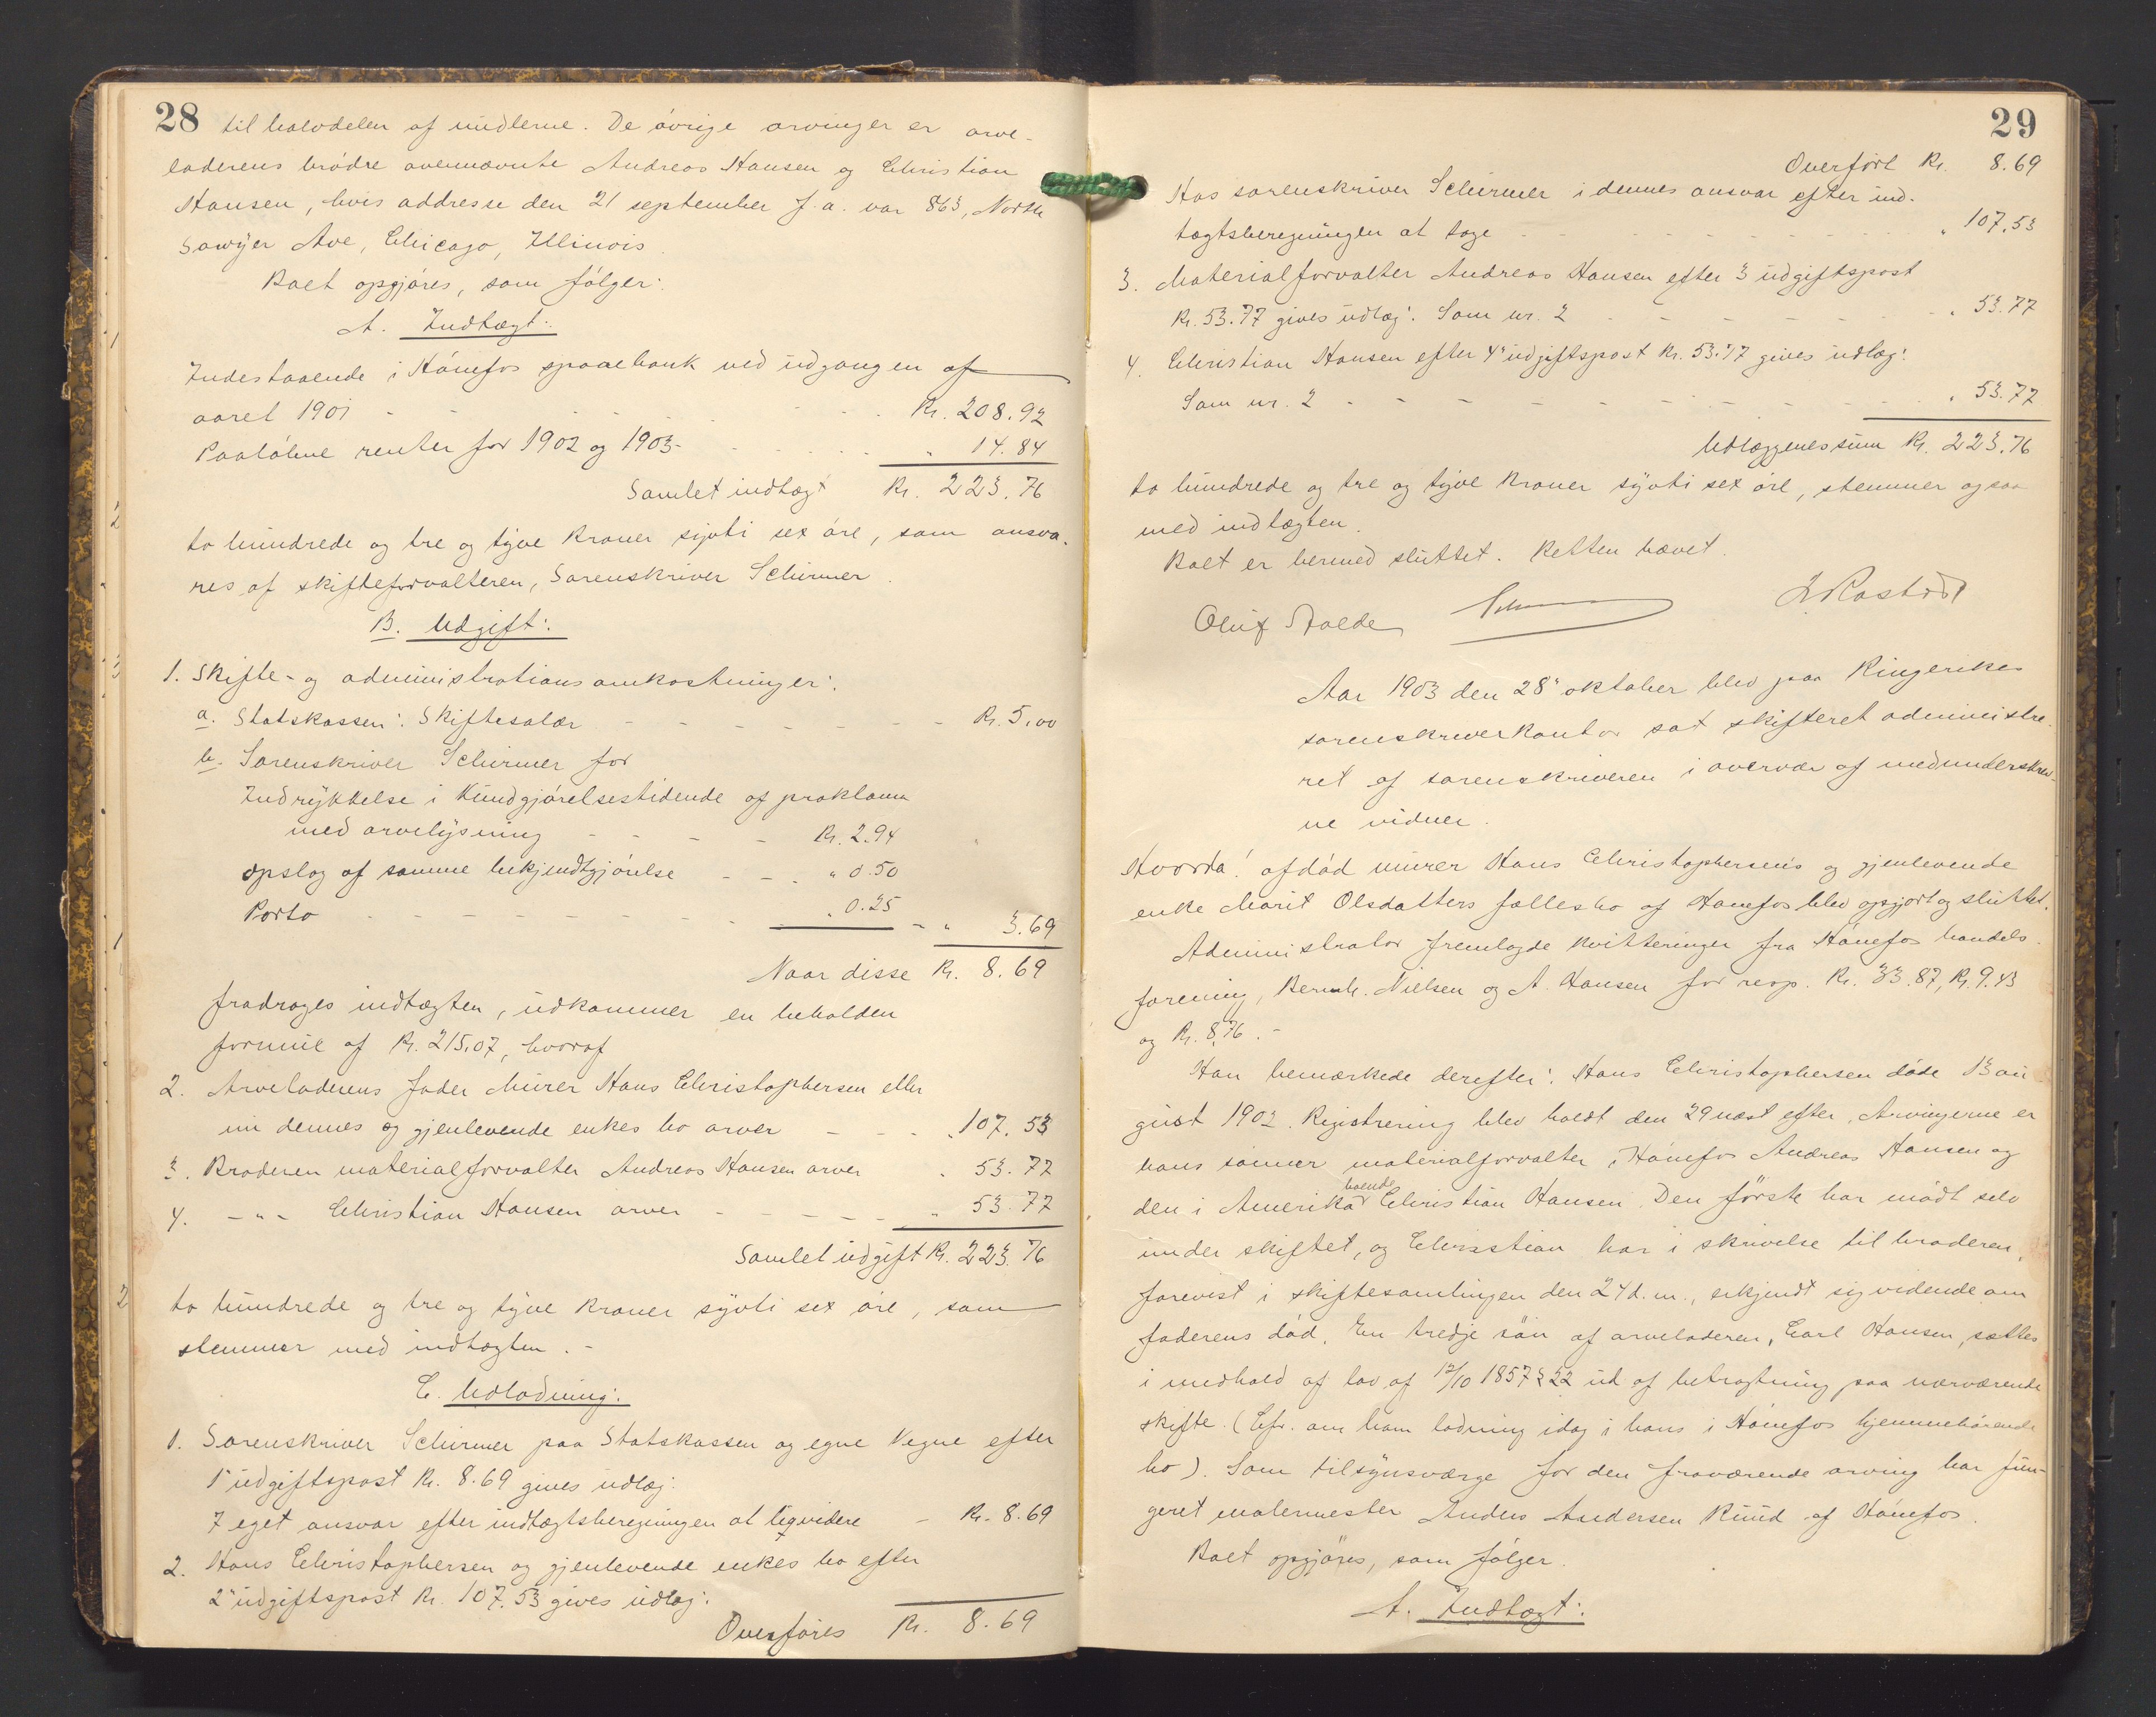 28
til halvdelen af midlerne. De øvrige arvinger er arve-
laderens brødre ovennævnte Andreas Hansen og Christian
Hansen, hvis addresse den 21 september f. a. var 863, North
Sawyer Ave, Chicago, Illinois.
Boet opgjøres, som følger:
A. Indtægt:
Indestaaende i Hønefos sparebank ved udgangen af
aaret 1901 - - - - - Kr. 208.92
Paaløbne renter for 1902 og 1903 - - - - " 14.84
Samlet indtægt Kr. 223.76
to hundrede og tre og tyve Kroner sytti sex øre, som ansva-
res af skifteforvalteren, Sorenskriver Schirmer.
B. Udgift:
1. Skifte- og administrationsomkostninger:
a. Statskassen: Skiftesalær - - - - - Kr. 5,00
b. Sorenskriver Schirmer for
Indrykkelse i Kundgjørelsestidende af proklama
med arvelysning - - - - Kr. 2.94
opslag af samme bekjendtgjørelse - - - " 0.50
Porto - - - - - - " 0.25 - " 3.69
Naar disse Kr. 8.69
fradrages indtægten, udkommer en beholden
formue af Kr. 215,07, hvoraf
2. Arveladerens fader Murer Hans Christophersen eller
nu dennes og gjenlevende enkes bo arver - - - " 107.53
3. Broderen materialforvalter Andreas Hansen arver " 53.77
4. - " - Christian Hansen arver - - - - - " 53.77
Samlet udgift Kr. 223.76
to hundrede og tre og tyve Kroner sytti sex øre, som
stemmer med indtægten. -
C. Udlodning:
1. Sorenskriver Schirmer paa Statskassen og egne Vegne efter
1" udgiftspost Kr. 8.69 gives udlæg:
I eget ansvar efter indtægtsberegningen at liqvidere - Kr. 8.69
2. Hans Christophersen og gjenlevende enkes bo efter
2" udgiftspost Kr. 107.53 gives udlæg:
Overføres Kr. 8.69
29
Overført Kr. 8.69
Hos sorenskriver Schirmer i dennes ansvar efter ind-
tægtsberegningen at tage - - - - - " 107,53
3. Materialforvalter Andreas Hansen efter 3 udgiftspost
Kr. 53.77 gives udlæg: Som nr. 2 - - - - - " 53.77
4. Christian Hansen efter 4" udgiftspost Kr. 53.77 gives udlæg:
Som nr. 2 - - - - - - - " 53.77
Udlæggenes sum Kr. 223.76
to hundrede og tre og tyve Kroner sytti sex øre, stemmer ogsaa
med indtægten.
Boet er hermed sluttet. Retten hævet.
Oluf Skolde
Aar 1903 den 28" oktober blev paa Ringerikes
sorenskriverkontor sat skifteret administre-
ret af sorenskriveren i overvær af medunderskrev-
ne vidner.
Hvorda: afdød murer Hans Christophersens og gjenlevende
enke Marit Olsdatters fællesbo af Hønefos blev opgjort og sluttet.
Administrator fremlagde kvitteringer fra Hønefos handels-
forening, Bernh. Nielsen og A. Hansen for resp. Kr. 33.87, Kr. 9.43
og Kr. 8,76. -
Han bemærkede derefter: Hans Christophersen døde 13 au-
gust 1902. Registrering blev holdt den 29 næst efter. Arvingerne er
hans sønner materialforvalter i Hønefos Andreas Hansen og
den i Amerika boende Christian Hansen. Den første har mødt selv
under skiftet, og Chrisstian har i skrivelse til broderen,
forevist i skiftesamlingen den 24 d. m., erkjendt sig vidende om
faderens død. En tredje søn af arveladeren, Carl Hansen, sættes
i medhold af lov af 12/10 1857 § 22 ud af betragtning paa nærværende
skifte. (Cfr. om ham lodning idag i hans i Hønefos hjemmehørende
bo). Som tilsynsværge for den fraværende arving har fun-
geret malermester Anders Andersen Ruud af Hønefos.
Boet opgjøres, som følger.
A. Indtægt: